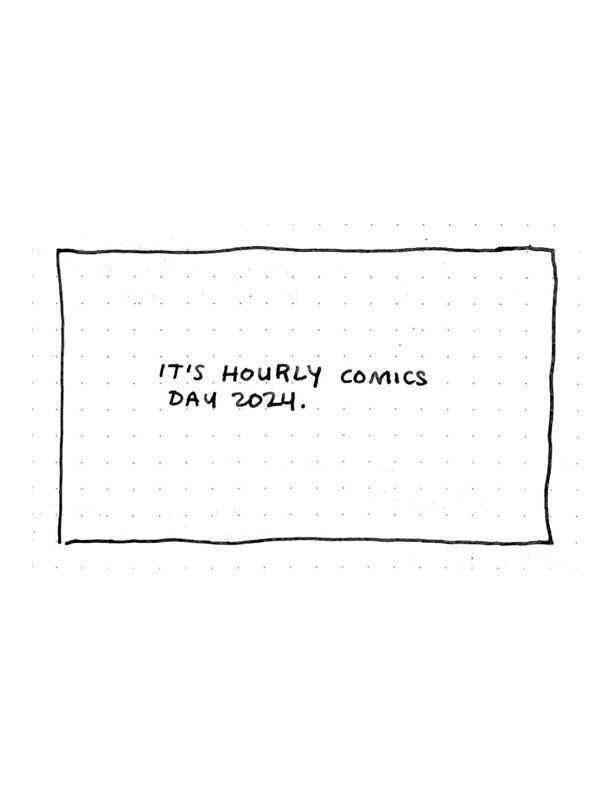 IT'S HOURLY COMICS
DAY 2024.